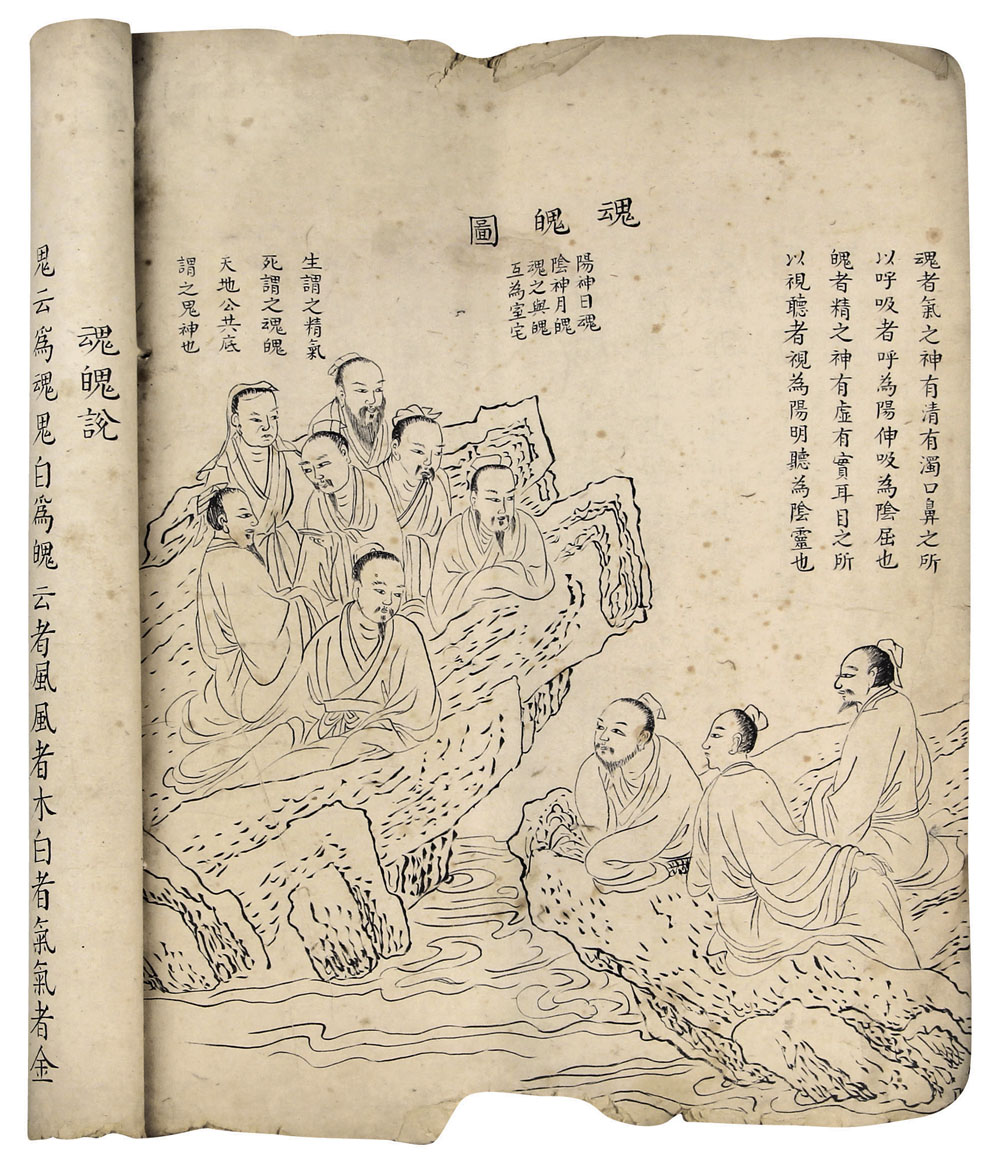 魂魄圖
魂者氣之神有清有濁口鼻之所
以呼吸者呼為陽伸吸為陰屈也
魄者精之神有虛有實耳目之所
以視聽者視為陽明聽為陰靈也
陽神日魂
陰神月魄
魂之與魄
互為室宅
生謂之精氣
死謂之魂魄
天地公共底
謂之鬼神也
魂魄說
鬼云爲魂鬼白爲魄云者風風者木白者氣氣者金